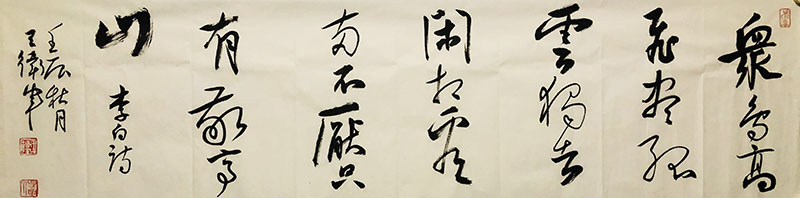 衆鳥高
飛盡孤
雲獨去
閑相看
兩不厭只
有敬亭
山 李白詩
壬辰秋月
王衛